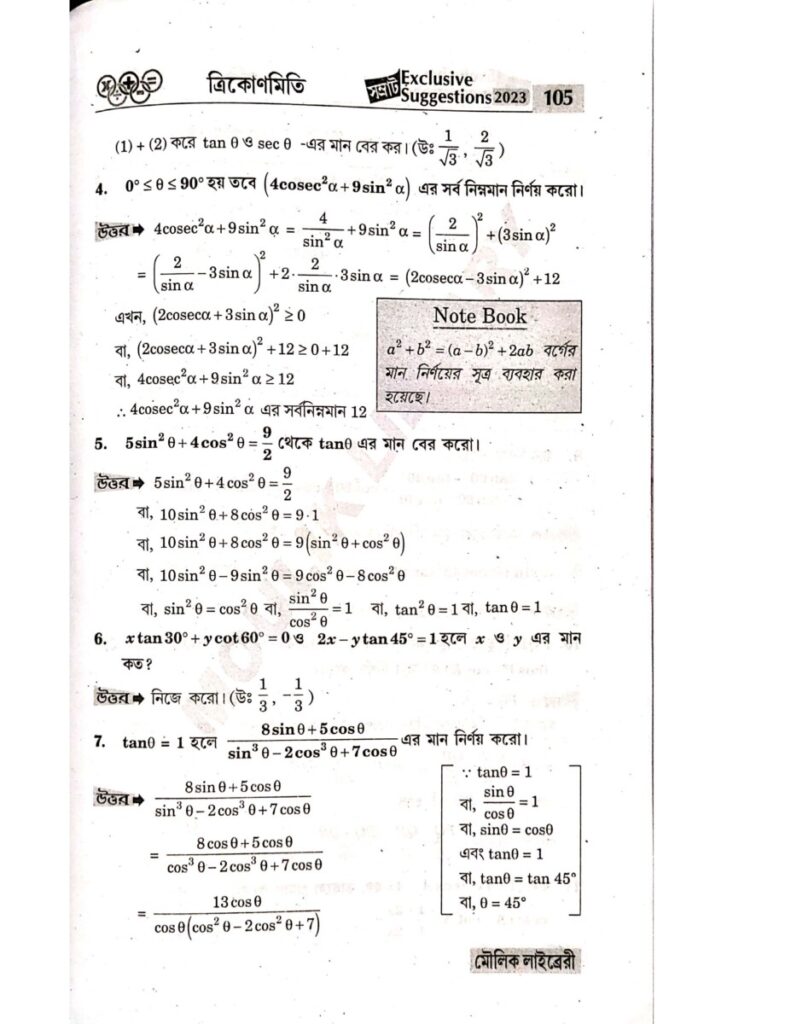 ত্রিকোণমিতি
সম্রাট Exclusive Suggestions 2023 105
(1) + (2) করে tan θ ও sec θ -এর মান বের কর। (উঃ 1/√3 , 2/√3 )
4. 0° ≤ θ ≤ 90° হয় তবে (4cosec²α + 9sin²α) এর সর্ব নিম্নমান নির্ণয় করো।
উত্তর ➡ 4cosec²α + 9sin²α = 4/sin²α + 9sin²α = (2/sinα)² + (3sinα)²
= (2/sinα − 3sinα)² + 2·2/sinα·3sinα = (2cosecα − 3sinα)² + 12
এখন, (2cosecα + 3sinα)² ≥ 0
বা, (2cosecα + 3sinα)² + 12 ≥ 0 + 12
বা, 4cosec²α + 9sin²α ≥ 12
∴ 4cosec²α + 9sin²α এর সর্বনিম্নমান 12
Note Book
a² + b² = (a − b)² + 2ab বর্গের
মান নির্ণয়ের সূত্র ব্যবহার করা
হয়েছে।
5. 5sin²θ + 4cos²θ = 9/2 থেকে tanθ এর মান বের করো।
উত্তর ➡ 5sin²θ + 4cos²θ = 9/2
বা, 10sin²θ + 8cos²θ = 9·1
বা, 10sin²θ + 8cos²θ = 9(sin²θ + cos²θ)
বা, 10sin²θ − 9sin²θ = 9cos²θ − 8cos²θ
বা, sin²θ = cos²θ বা, sin²θ/cos²θ = 1 বা, tan²θ = 1 বা, tanθ = 1
6. x tan30° + y cot60° = 0 ও 2x − y tan45° = 1 হলে x ও y এর মান
কত?
উত্তর ➡ নিজে করো। (উঃ 1/3 , −1/3 )
7. tanθ = 1 হলে (8sinθ + 5cosθ)/(sin³θ − 2cos³θ + 7cosθ) এর মান নির্ণয় করো।
উত্তর ➡ (8sinθ + 5cosθ)/(sin³θ − 2cos³θ + 7cosθ)
= (8cosθ + 5cosθ)/(cos³θ − 2cos³θ + 7cosθ)
= 13cosθ/(cosθ(cos²θ − 2cos²θ + 7))
∵ tanθ = 1
বা, sinθ/cosθ = 1
বা, sinθ = cosθ
এবং tanθ = 1
বা, tanθ = tan 45°
বা, θ = 45°
মৌলিক লাইব্রেরী
MOULIK LIBRARY